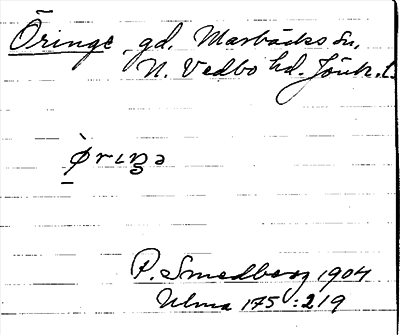 Öringe, gd. Marbäcks sn,
N. Vedbo hd. Jönk. L.
P. Smedberg 1904
Ulma 175:219